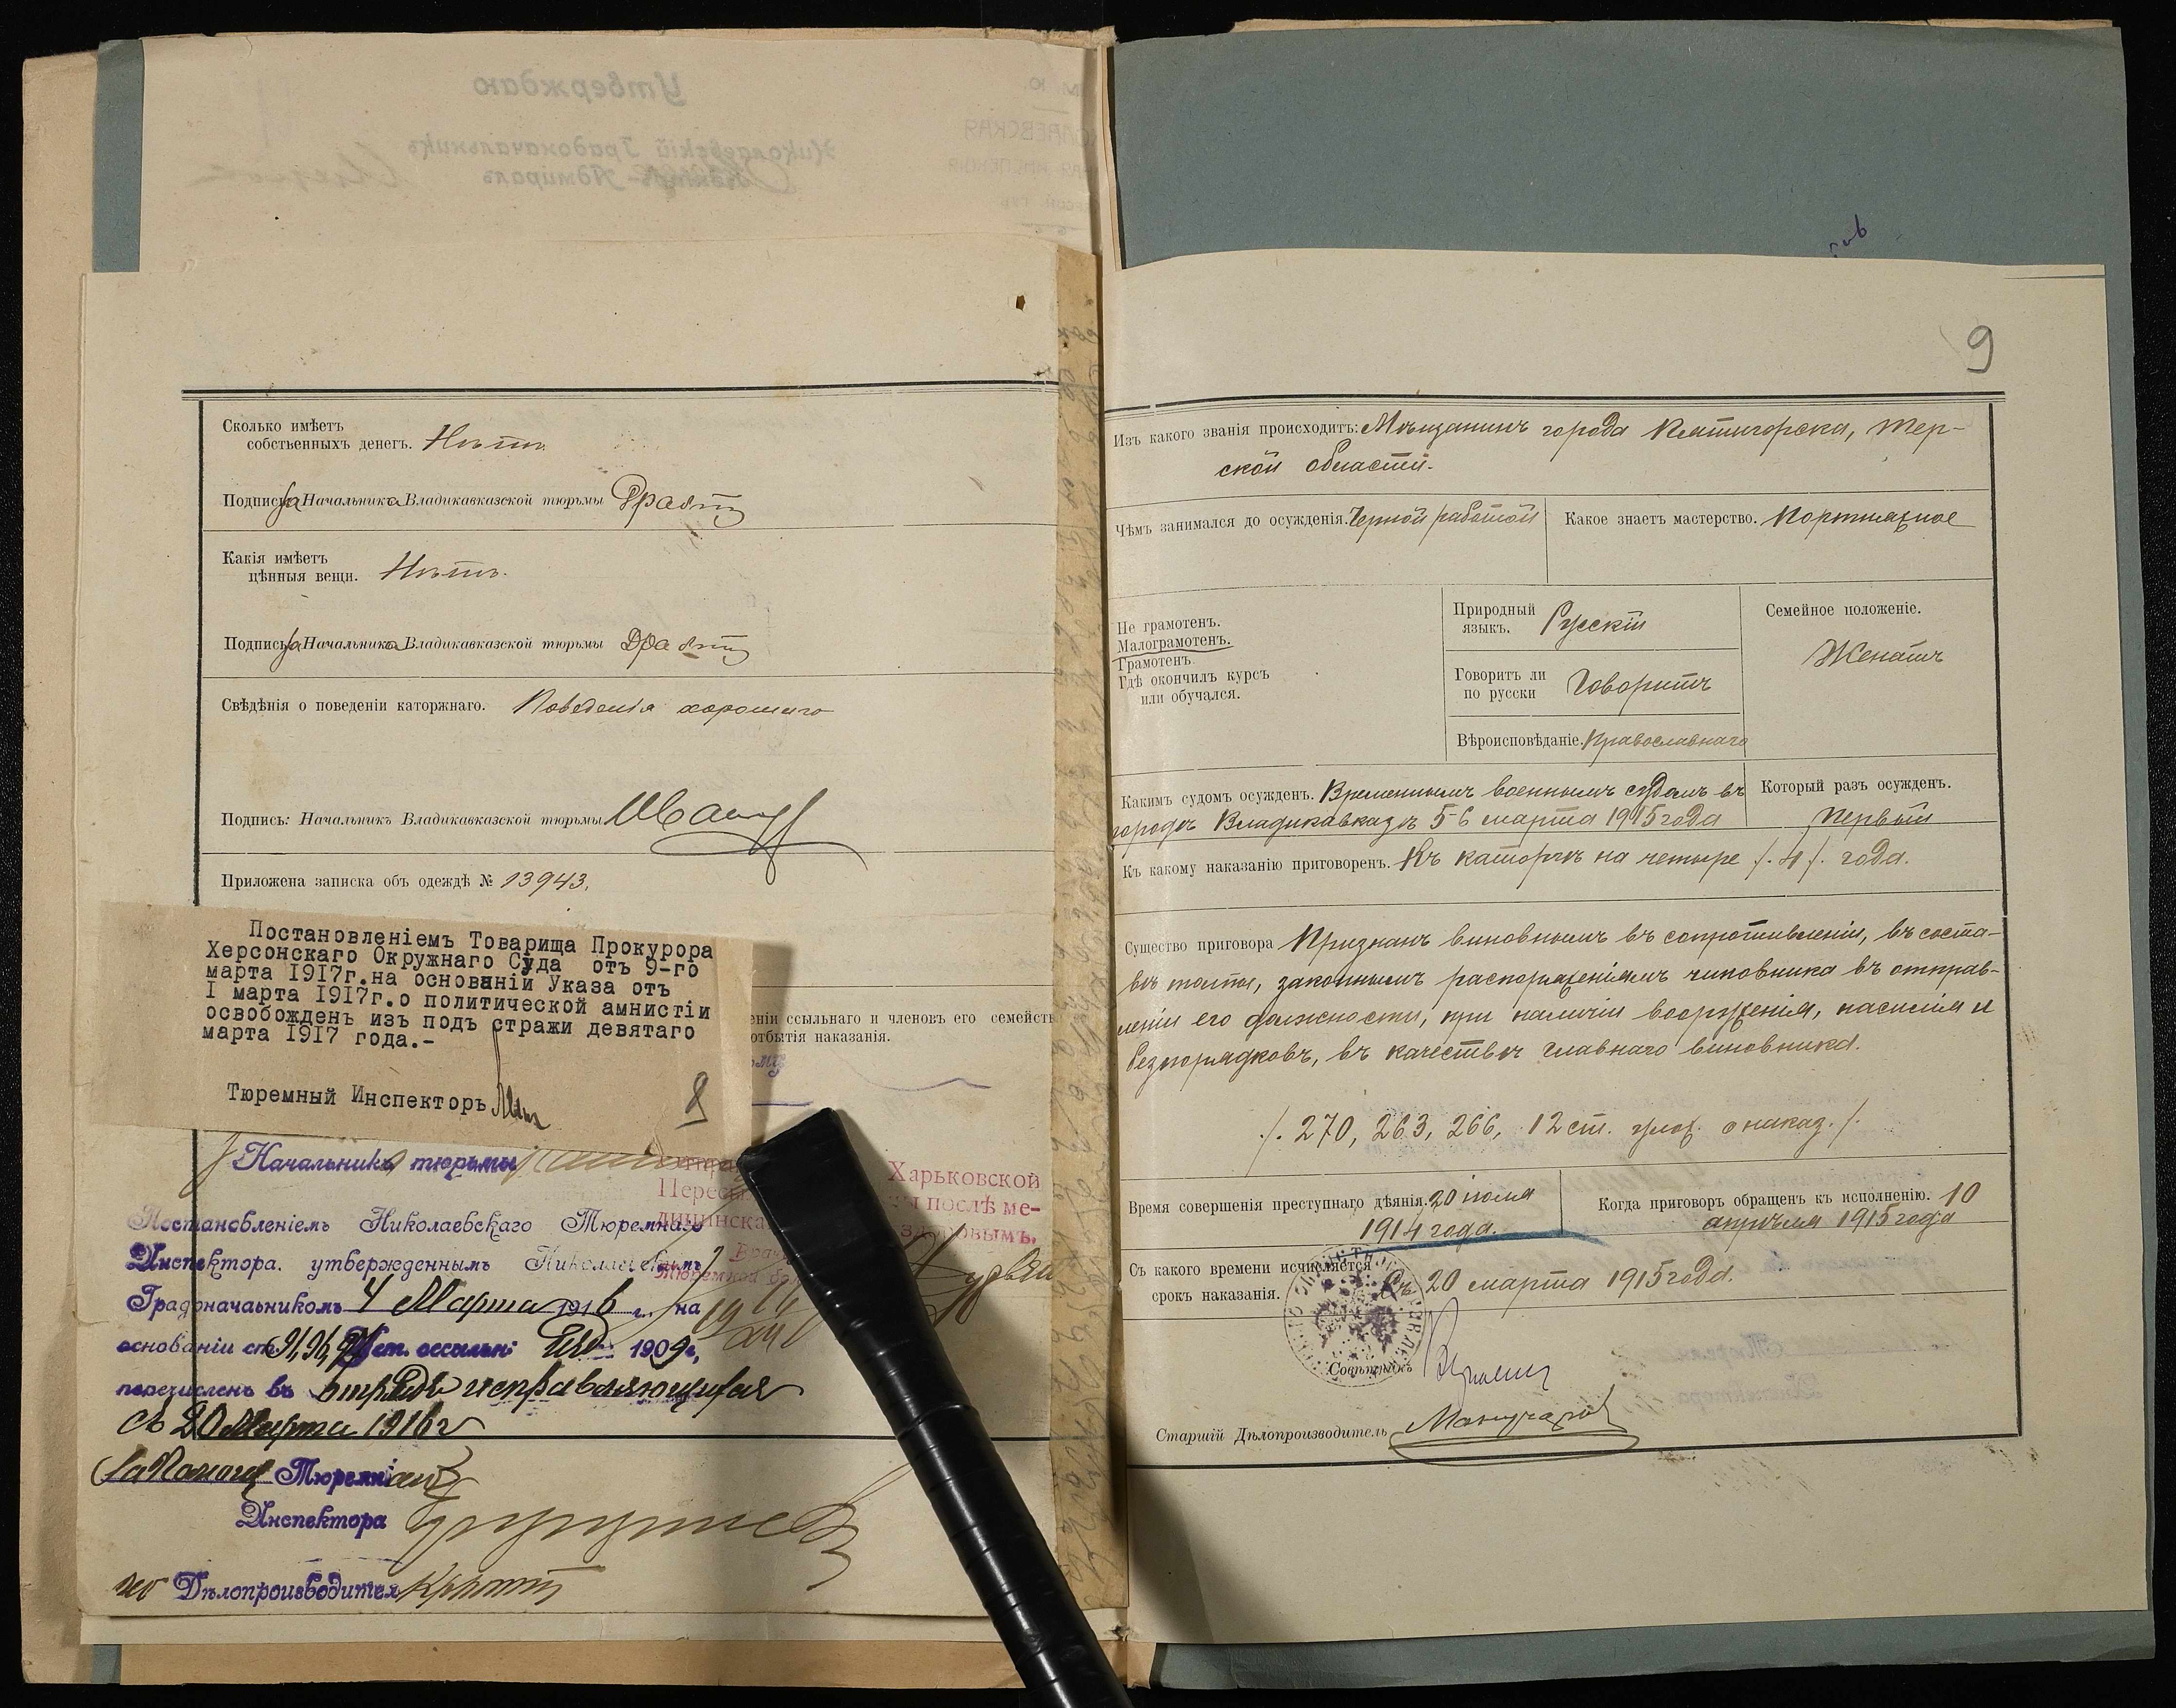 Сколько имѣетъ
собственныхъ денегъ. Нѣтъ.
Подпись: За Начальника Владикавказской тюрьмы
Какія имѣетъ
цѣнныя вещи. Нѣтъ.
Подпись: За Начальника Владикавказской тюрьмы
Свѣдѣнія о поведеніи каторжнаго. Поведенія хорошаго
Подпись: Начальникъ Владикавказской тюрьмы
Приложена записка объ одеждѣ № 13943.
Постановленіемъ Товарища Прокурора
Херсонскаго Окружнаго Суда отъ 9-го
марта 1917г.на основаніи Указа отъ
I марта 1917г.о политической амнистіи
освобожденъ изъ подъ стражи девятаго
марта 1917 года.-
Тюремный Инспекторъ
8
ссыльнаго и членовъ его семейств
отбытія наказанія.
Начальника тюрьмы
Харьковской
Пересы
послѣ ме-
дицинска
здоровымъ.
Врач
Тюремной бо
Постановленіемъ Николаевскаго Тюремнаго
Инспектора, утвержденнымъ Николаевскимъ
Градоначаьникомъ 4 Марта 1916 г. на
основаніи ст. 91, 96, 97 Уст. ссыльн. изд. 1909 г.,
перечисленъ въ отрядъ исправляющихся
съ 20 Марта 1916 г
За Помощ Тюремн
Инспектора
Дѣлопроизводителя
9
Изъ какого званія происходитъ: Мѣщанинъ города Пятигорска, Тер-
ской области.
Чѣмъ занимался до осужденія. Черной работой
Какое знаетъ мастерство. Портняжное
Не грамотенъ.
Малограмотенъ.
Грамотенъ
Гдѣ окончилъ курсъ
или обучался.
Природный
языкъ. Русскій
Говоритъ ли
по русски Говоритъ
Вѣроисповѣданіе. Православнаго
Семейное положеніе.
Женатъ
Какимъ судомъ осужденъ. Временнымъ военнымъ судомъ въ
городѣ Владикавказѣ 5-6 марта 1915 года
Который разъ осужденъ.
Первый
Къ какому наказанію приговоренъ. Къ каторгѣ на четыре /.4/. года.
Существо приговора Признанъ виновнымъ въ сопротивленіи, въ соста-
вѣ толпы, законнымъ распоряженіямъ чиновника въ отправ-
леніи его должности, при наличіи вооруженія, насилія и
безпорядковъ, въ качествѣ главнаго виновника.
/. 270, 263, 266, 12 ст. улож. о наказ./.
Время совершенія преступнаго дѣянія. 20 іюля
1914 года.
Когда приговоръ обращенъ къ исполненію. 10
апрѣля 1915 года
Съ какого времени исчисляется
срокъ наказанія. Съ 20 марта 1915 года.
Совѣтникъ
Старшій Дѣлопроизводитель